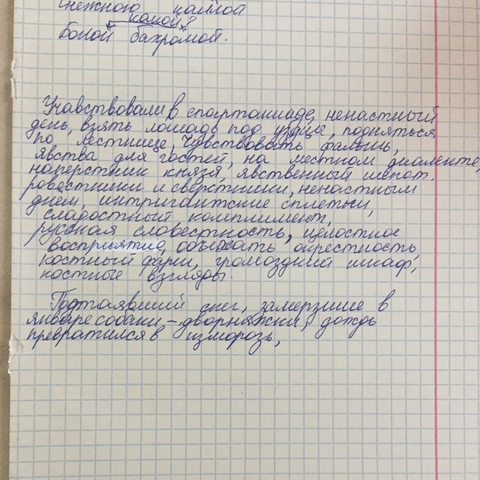 снежною каймой
какой?
Белой бахромой.
Учавствовали в спартакиаде, ненастный
день, взять лошадь под уздцы, подняться
по лестнице, чувствовать фальшь,
явства для гостей, на местном диалекте,
наперстник князя, явственный шепот.
ровестники и сверстники, ненастным
днем, интригантские сплетни,
сладостный комплимент,
русская словестность, целостное
восприятие, объехать окрестность
костный фарш, громоздкий шкаф,
костные взгляды.
Подтаявший снег, замерзшие в
январе собаки - дворняжки, дождь
превратился в изморозь,